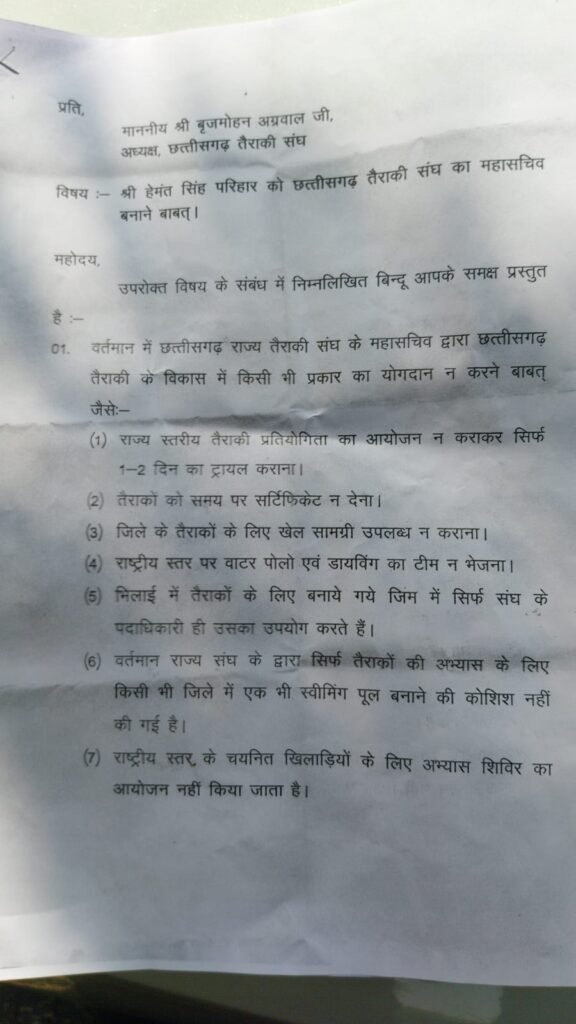 प्रति,
माननीय श्री बृजमोहन अग्रवाल जी,
अध्यक्ष, छत्तीसगढ़ तैराकी संघ
विषय :– श्री हेमंत सिंह परिहार को छत्तीसगढ़ तैराकी संघ का महासचिव
बनाने बाबत्।
महोदय,
उपरोक्त विषय के संबंध में निम्नलिखित बिन्दू आपके समक्ष प्रस्तुत
है :–
01. वर्तमान में छत्तीसगढ़ राज्य तैराकी संघ के महासचिव द्वारा छत्तीसगढ़
तैराकी के विकास में किसी भी प्रकार का योगदान न करने बाबत्
जैसेः–
(1) राज्य स्तरीय तैराकी प्रतियोगिता का आयोजन न कराकर सिर्फ
1–2 दिन का ट्रायल कराना।
(2) तैराकों को समय पर सर्टिफिकेट न देना।
(3) जिले के तैराकों के लिए खेल सामग्री उपलब्ध न कराना।
(4) राष्ट्रीय स्तर पर वाटर पोलो एवं डायविंग का टीम न भेजना।
(5) भिलाई में तैराकों के लिए बनाये गये जिम में सिर्फ संघ के
पदाधिकारी ही उसका उपयोग करते हैं।
(6) वर्तमान राज्य संघ के द्वारा सिर्फ तैराकों की अभ्यास के लिए
किसी भी जिले में एक भी स्वीमिंग पूल बनाने की कोशिश नहीं
की गई है।
(7) राष्ट्रीय स्तर के चयनित खिलाड़ियों के लिए अभ्यास शिविर का
आयोजन नहीं किया जाता है।